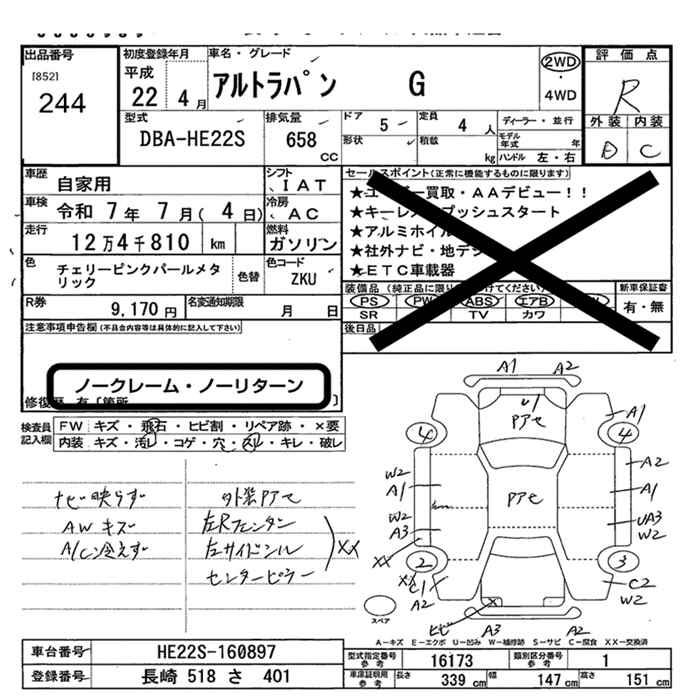 出品番号
[852]
244
初度登録年月
平成
22 4月
車名・グレード
アルトラパン G
2WD
・
4WD
評価点
R
外装 内装
D C
型式
DBA-HE22S
排気量
658 CC
ドア 5
定員 4 人
形状
積載 kg
ディーラー・並行
モデル年式 年
ハンドル 左・右
車歴
自家用
シフト
IAT
車検 令和 7年 7月( 4日)
冷房
AC
走行 12万4千810 km
燃料
ガソリン
色
チェリーピンクパールメタリック
色替
色コード
ZKU
R券 9,170 円
名変通知期限 月 日
セールスポイント(正常に機能するものに限ります)
★ユーザー買取・AAデビュー!!
★キーレス プッシュスタート
★アルミホイル
★社外ナビ・地デジ
★ETC車載器
装備品(純正品に限り ください)
PS PW ABS エアB
SR TV カワ
新車保証書
有・無
後日品
注意事項申告欄(不具合内容等は具体的に記入して下さい)
ノークレーム・ノーリターン
修復歴 有〔箇所
検査員記入欄
FW キズ・飛石・ヒビ割・リペア跡・×要
内装 キズ・汚レ・コゲ・穴・スレ・キレ・破レ
ナビ映らず
AWキズ
A/C冷えず
外装PPセ
左Rフェンダー
左サイドシル
センターピラー
XX
A1 A2
U1
PPセ
4 4
A1
W2
A1
W2
A3
XX
A2
A1
UA3
W2
PPセ
2 3
XX
C1
A2
C2
W2
X
ヒビ A3 A2
スペア
A-キズ E-エクボ U-凹み W-補修跡 S-サビ C-腐食 XX-交換済
車台番号 HE22S-160897
登録番号 長崎 518 さ 401
型式指定番号
参考
16173
類別区分番号
参考
1
車庫証明用
参考
長さ 339 cm 幅 147 cm 高さ 151 cm